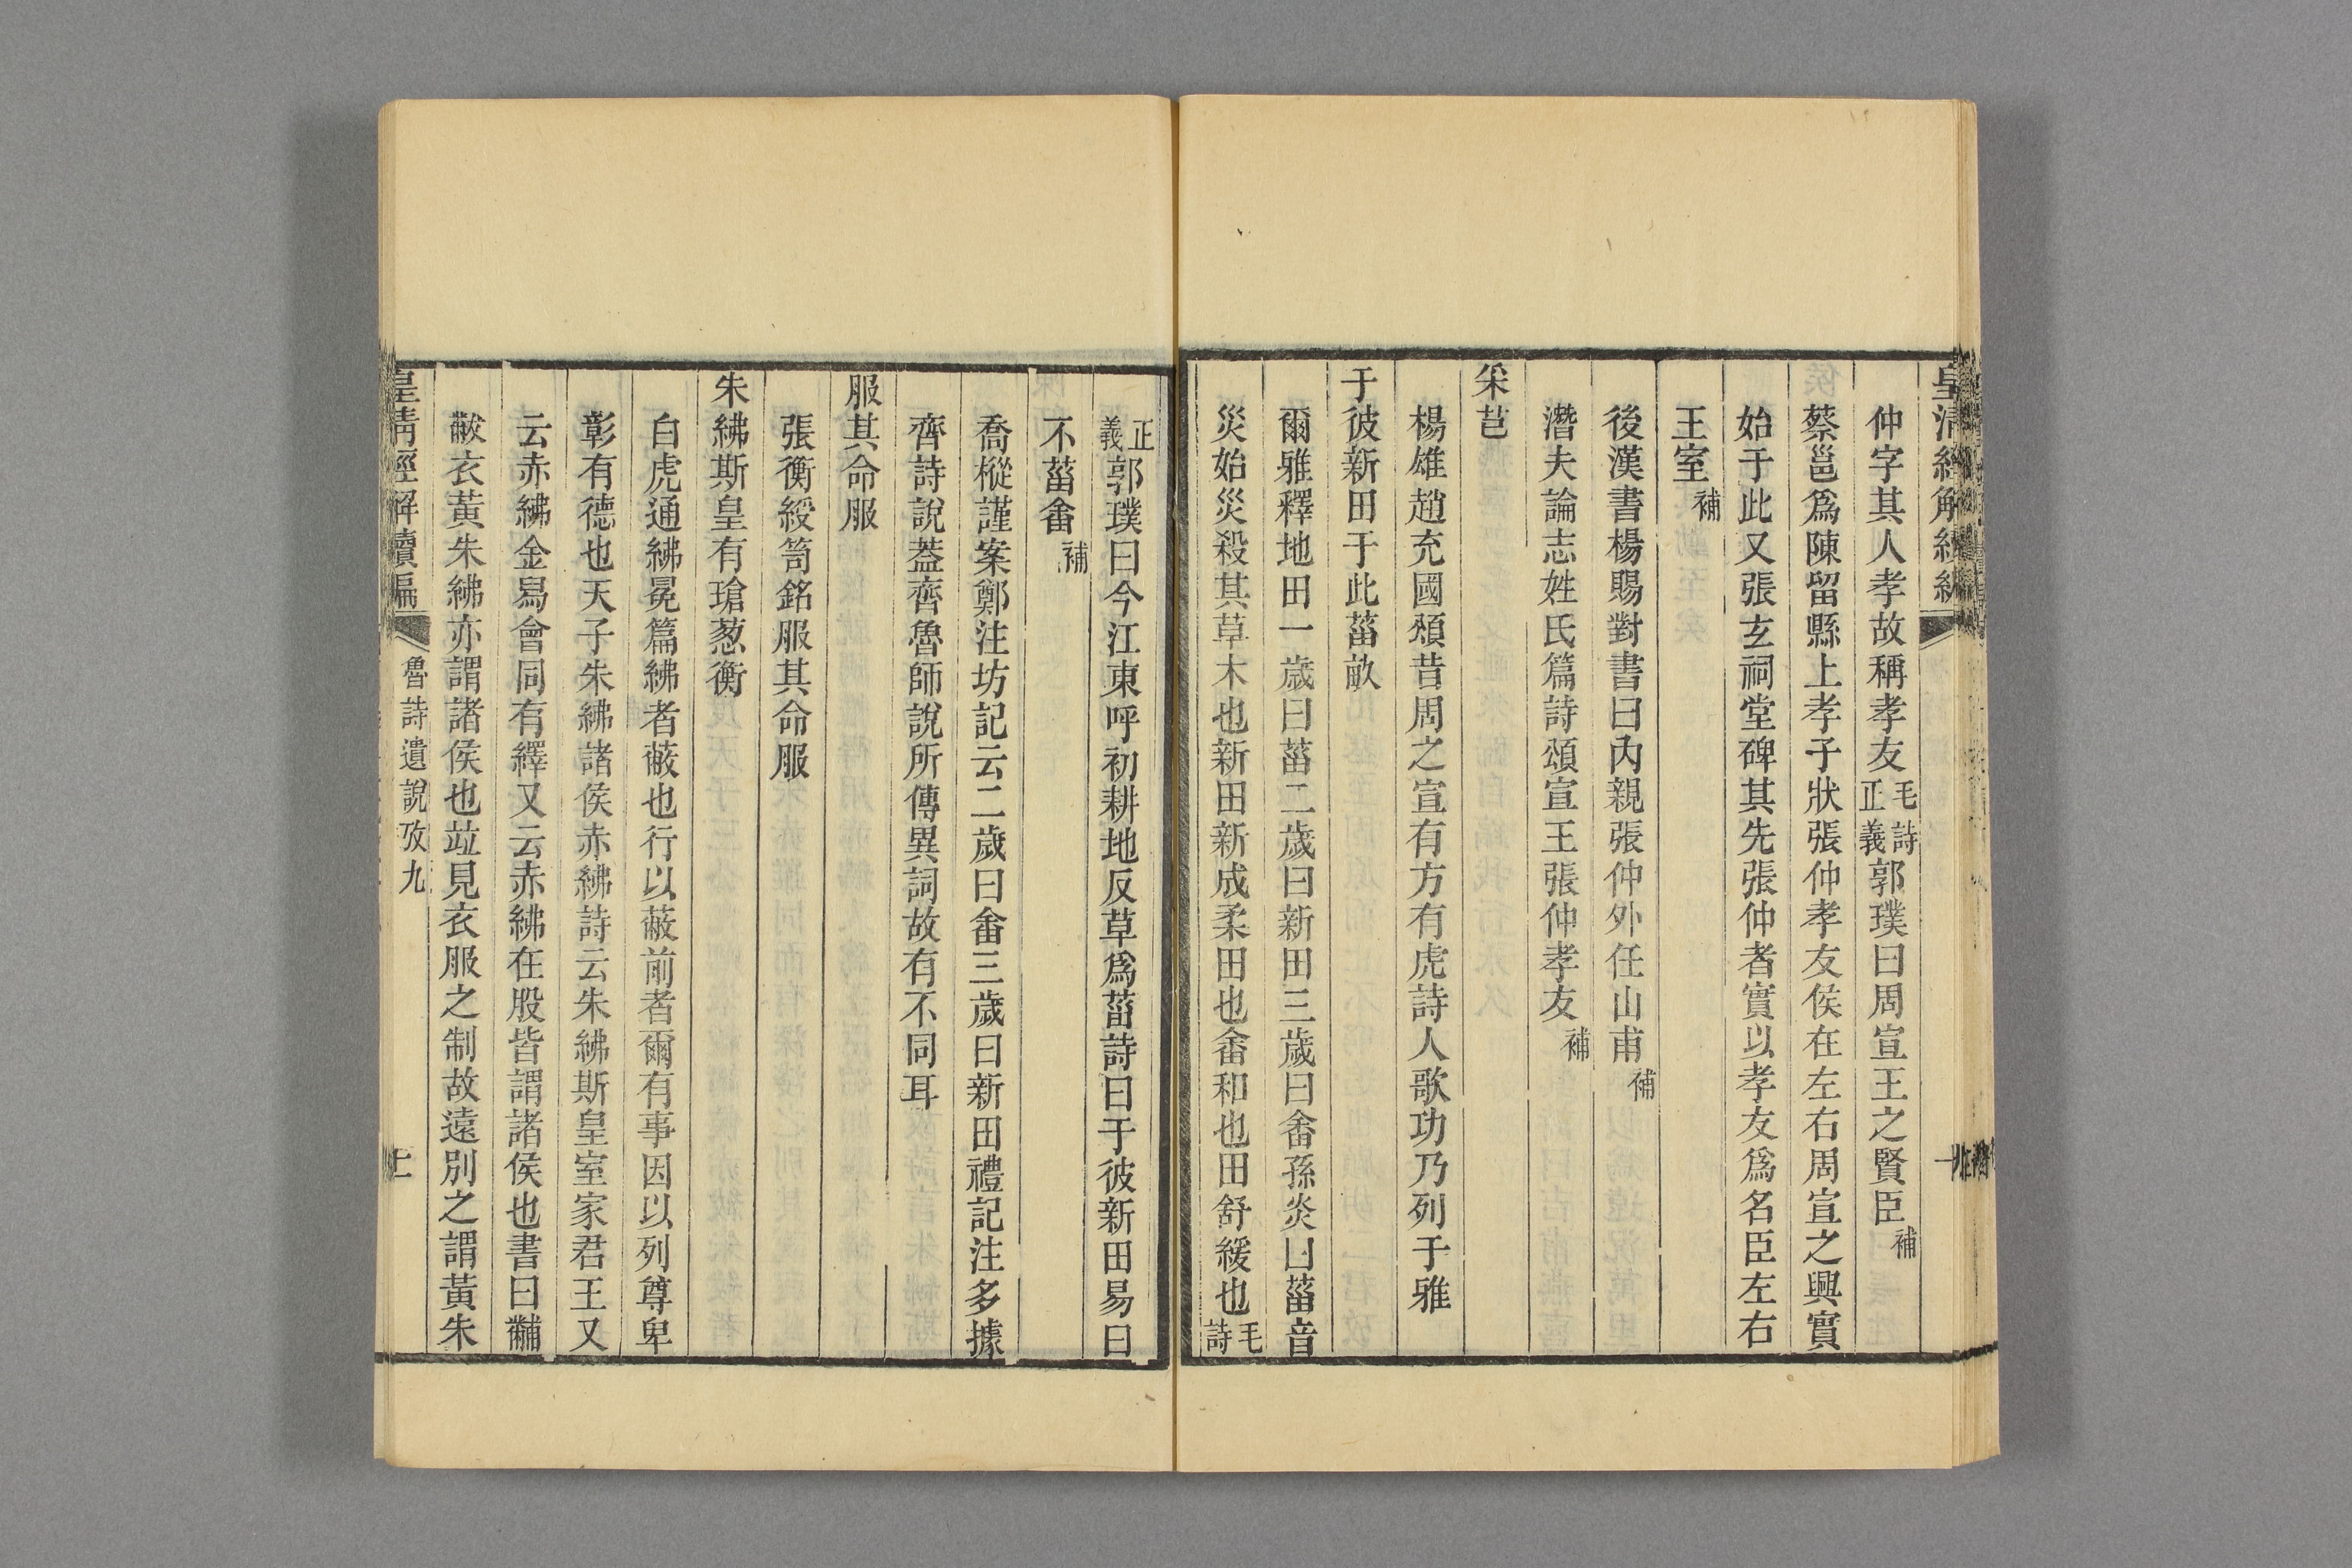 仲字其人孝故稱孝友毛詩正義郭璞曰周宣王之賢臣補
蔡邕爲陳留縣上孝子狀張仲孝友侯在左右周宣之興實
始于此又張玄祠堂碑其先張仲者實以孝友爲名臣左右
王室補
後漢書楊賜對書曰內親張仲外任山甫補
潛夫論志姓氏篇詩頌宣王張仲孝友補
采芑
楊雄趙充國頌昔周之宣有方有虎詩人歌功乃列于雅
于彼新田于此菑畝
爾雅釋地田一歲曰菑二歲曰新田三歲曰畬孫炎曰菑音
災始災殺其草木也新田新成柔田也畬和也田舒緩也毛詩
正義郭璞曰今江東呼初耕地反草爲菑詩曰于彼新田易曰
不菑畬補
喬樅謹案鄭注坊記云二歲曰畬三歲曰新田禮記注多據
齊詩說葢齊魯師說所傳異詞故有不同耳
服其命服
張衡綬笥銘服其命服
朱紼斯皇有瑲葱衡
白虎通紼冕篇紼者蔽也行以蔽前者爾有事因以列尊卑
彰有德也天子朱紼諸侯赤紼詩云朱紼斯皇室家君王又
云赤紼金舄會同有繹又云赤紼在股皆謂諸侯也書曰黼
黻衣黃朱紼亦謂諸侯也竝見衣服之制故遠別之謂黃朱
皇清經解續編 魯詩遺說攷九